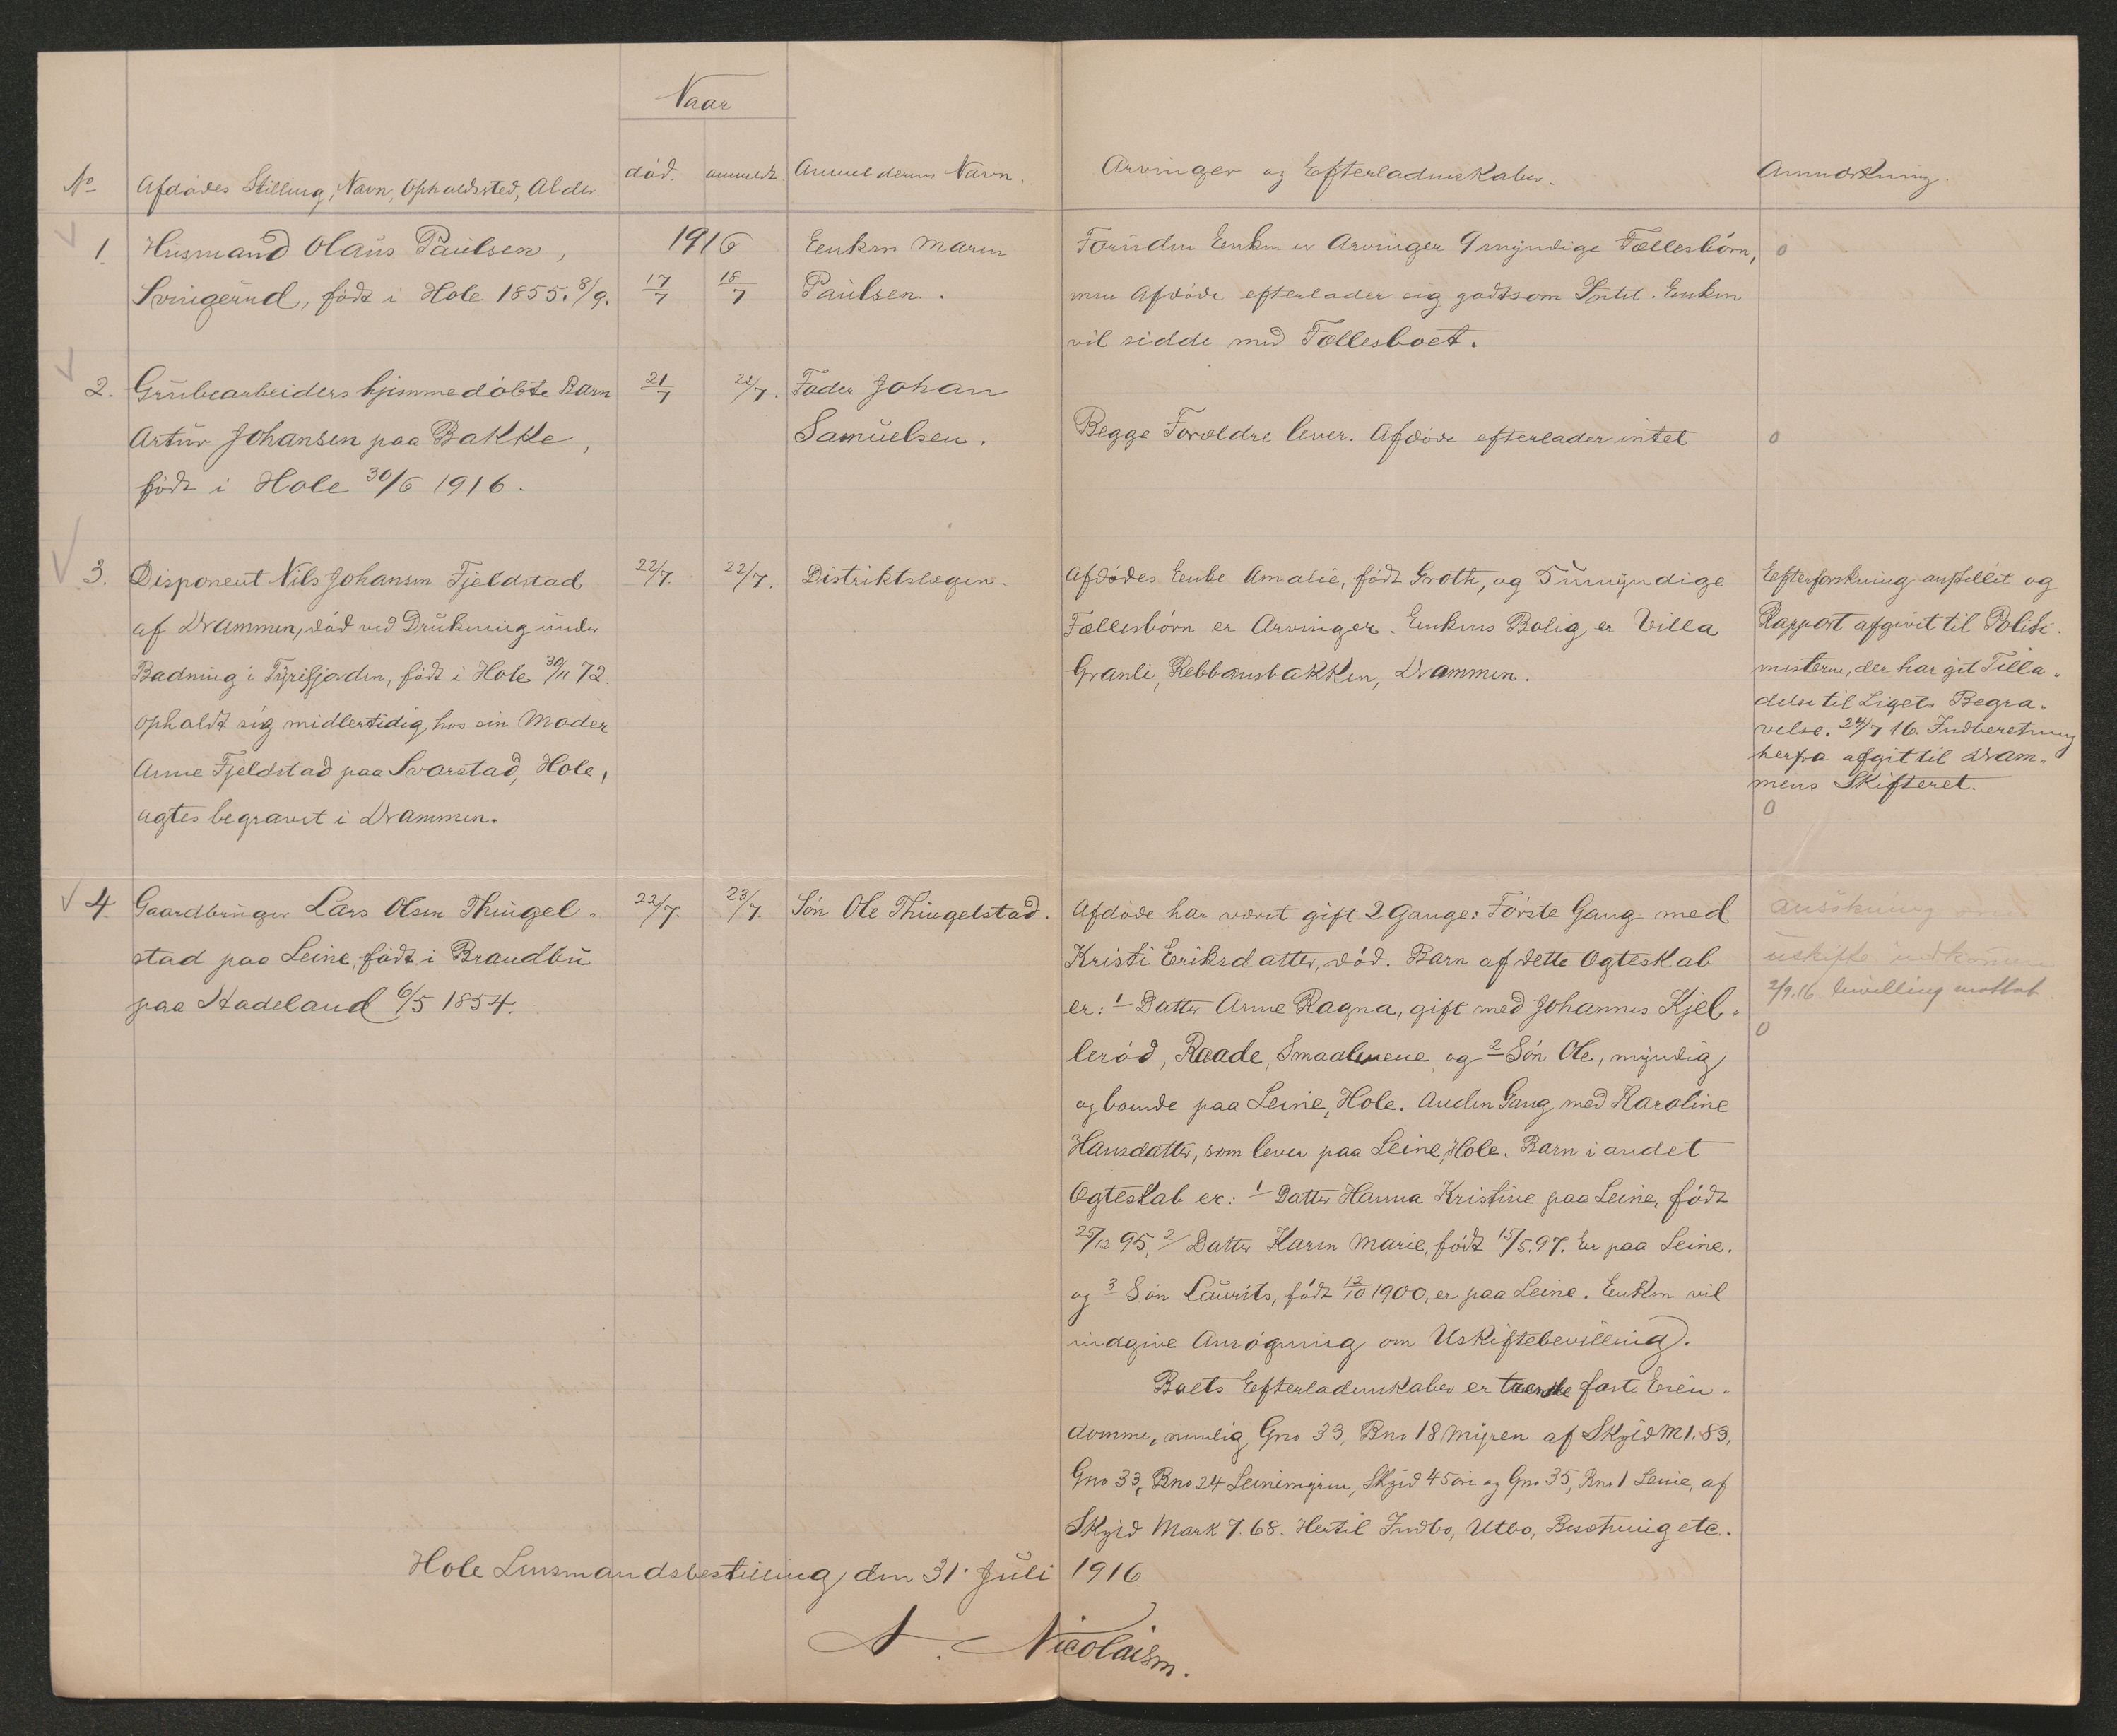 Naar
No
Afdødes Stilling, Navn, Opholdssted, Alder
død.
anmeldt
Anmelderens Navn.
Arvinger og Efterladenskaber.
Anmerkning.
1.
Husmand Olaus Paulsen,
Svingerud, født i Hole 1855. 8/9.
1916
17/7
18/7
Enken Maren
Paulsen.
Foruden Enken er Arvinger 9 myndige Fællesbørn,
men Afdøde efterlader sig godtsom Intet. Enken
vil sidde med Fællesboet.
0
2.
Grubearbeiders hjemmedøbte Barn
Artur Johansen paa Bakke,
født i Hole 30/6 1916.
21/7
22/7.
Fader Johan
Samuelsen.
Begge Forældre lever. Afdøde efterlader intet
0
3.
Disponent Nils Johansen Fjeldstad
af Drammen, død ved Drukning under
Badning i Tyrifjorden, født i Hole 30/11 72.
opholdt sig midlertidig hos sin Moder
Anne Fjeldstad paa Svarstad, Hole,
agtes begravet i Drammen.
22/7.
22/7.
Distriktslægen.
Afdødes Enke Amalie, født Groth, og 5 umyndige
Fællesbørn er Arvinger. Enkens Bolig er Villa
Granli, Rebbansbakken, Drammen.
Efterforskning anstillet og
Rapport afgivet til Politi-
mesteren, der har git Tilla-
delse til Ligets Begra-
velse. 24/7 16. Indberetning
herfra afgit til Dram-
mens Skifteret.
0
4.
Gaardbruger Lars Olsen Thingel-
stad paa Leine, født i Brandbu
paa Hadeland 6/5 1854.
22/7.
23/7.
Søn Ole Thingelstad.
Afdøde har været gift 2 Gange: Første Gang med
Kristi Eriksdatter, død. Barn af dette Ægteskab
er: 1 Datter Anne Ragna, gift med Johannes Kjel-
lerød, Raade, Smaalenene og 2 Søn Ole, myndig
og boende paa Leine, Hole. Anden Gang med Karoline
Hansdatter, som lever paa Leine, Hole. Barn i andet
Ægteskab er: 1 Datter Hanna Kristine paa Leine, født
25/12 95, 2/ Datter Karen Marie, født 15/5.97. Er paa Leine.
og 3 Søn Laurits, født 12/10 1900, er paa Leine. Enken vil
indgive Ansøgning om Uskiftebevilling.
Boets Efterladenskaber er trende faste Eien-
domme, nemlig Gno 33, Bno 18 Myren af Skyld M 1.83,
Gno 33, Bno 24 Leinemyren, Skyld 45 øre og Gno 35, Bno 1 Leine, af
Skyld Mark 7.68. Hertil Indbo, Utbo, Besætning etc.
ansökning om
uskifte indkommen
2/9.16. bevilling mottat
0
Hole Lensmandsbestilling, den 31. Juli 1916
N. Nicolaisen.